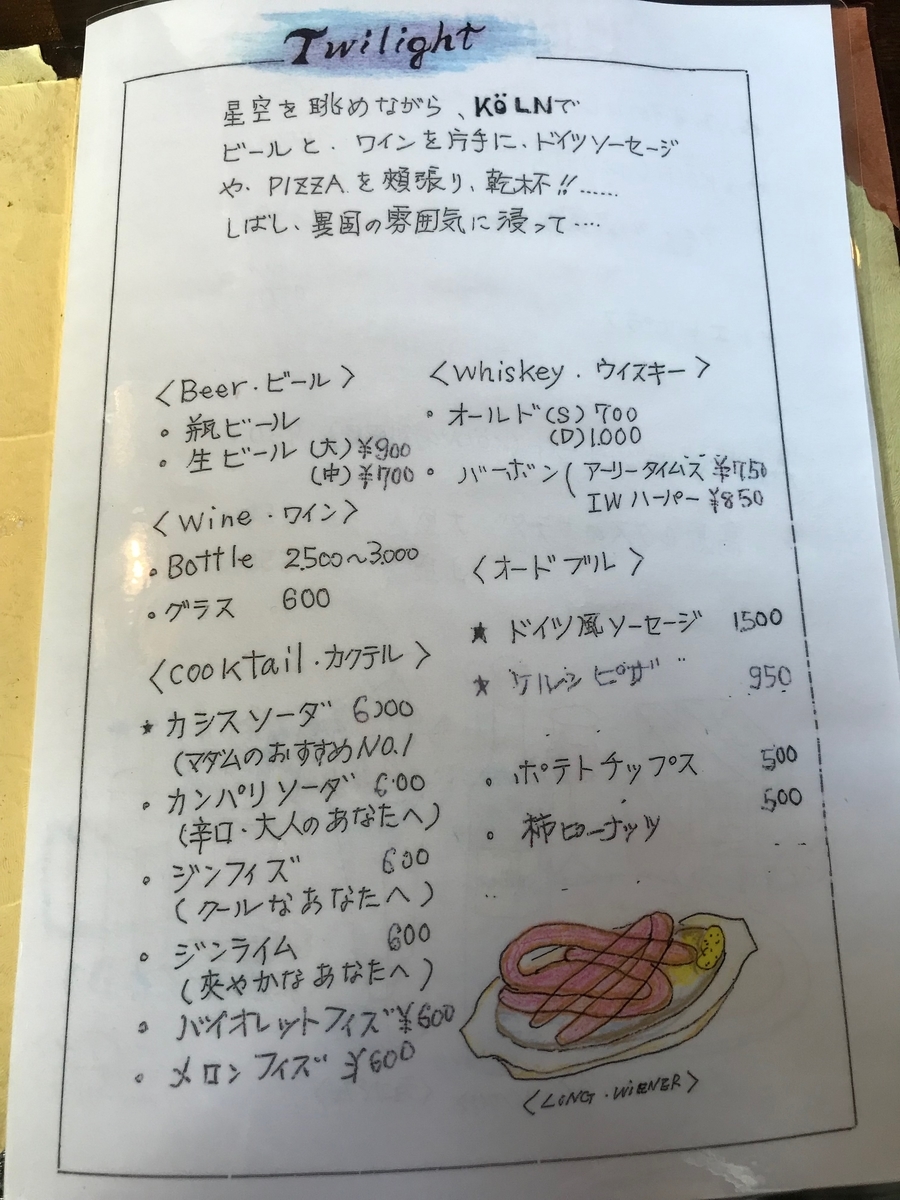 Twilight
星空を眺めながら、KÖLNで
ビールと、ワインを片手に、ドイツソーセージ
や、PIZZAを頬張り、乾杯!!……
しばし、異国の雰囲気に浸って…
〈Beer・ビール〉
・瓶ビール
・生ビール (大)¥900
(中)¥700
〈Wine・ワイン〉
・Bottle 2.500～3.000
・グラス 600
〈cooktail・カクテル〉
★カシスソーダ 600
(マダムのおすすめNO.1
・カンパリソーダ 600
(辛口・大人のあなたへ)
・ジンフィズ 600
(クールなあなたへ)
・ジンライム 600
(爽やかなあなたへ)
・バイオレットフィズ¥600
・メロンフィズ ¥600
〈Whiskey・ウイスキー〉
・オールド(S) 700
(D)1.000
・バーボン( アーリータイムズ ¥750
IWハーパー ¥850
〈オードブル〉
★ ドイツ風ソーセージ 1.500
★ ケルンピザ 950
・ポテトチップス 500
・柿ピーナッツ 500
〈LONG・WiENER〉